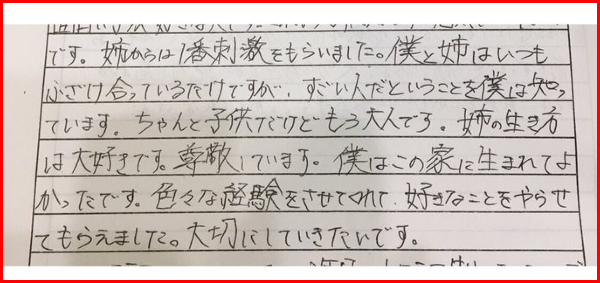 です。姉からは1番刺激をもらいました。僕と姉はいつも
ふざけ合っているだけですが、すごい人だということを僕は知っ
ています。ちゃんと子供だけどもう大人です。姉の生き方
は大好きです。尊敬しています。僕はこの家に生まれてよ
かったです。色々な経験をさせてくれて、好きなことをやらせ
てもらえました。大切にしていきたいです。